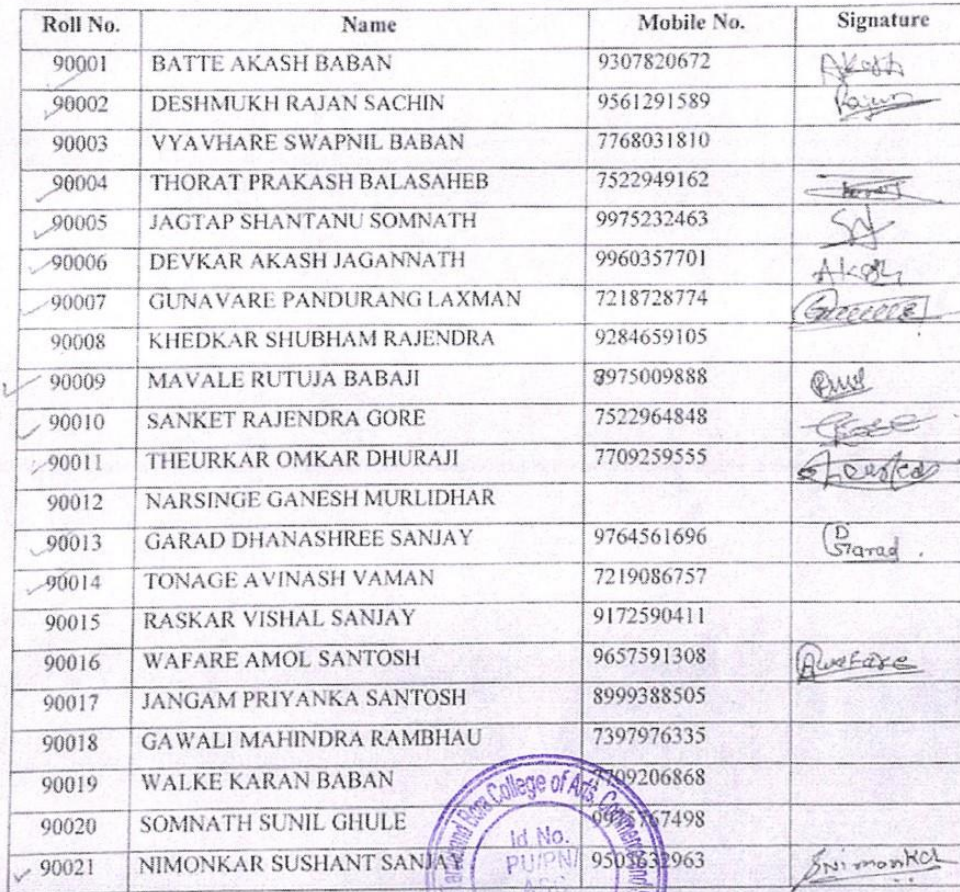 Roll No. Name Mobile No. Signature
90001 BATTE AKASH BABAN 9307820672 Akash
90002 DESHMUKH RAJAN SACHIN 9561291589 Rajan
90003 VYAVHARE SWAPNIL BABAN 7768031810
90004 THORAT PRAKASH BALASAHEB 7522949162
90005 JAGTAP SHANTANU SOMNATH 9975232463
90006 DEVKAR AKASH JAGANNATH 9960357701 Akash
90007 GUNAVARE PANDURANG LAXMAN 7218728774
90008 KHEDKAR SHUBHAM RAJENDRA 9284659105
90009 MAVALE RUTUJA BABAJI 8975009888
90010 SANKET RAJENDRA GORE 7522964848
90011 THEURKAR OMKAR DHURAJI 7709259555
90012 NARSINGE GANESH MURLIDHAR
90013 GARAD DHANASHREE SANJAY 9764561696
90014 TONAGE AVINASH VAMAN 7219086757
90015 RASKAR VISHAL SANJAY 9172590411
90016 WAFARE AMOL SANTOSH 9657591308 Awafare
90017 JANGAM PRIYANKA SANTOSH 8999388505
90018 GAWALI MAHINDRA RAMBHAU 7397976335
90019 WALKE KARAN BABAN 7709206868
90020 SOMNATH SUNIL GHULE
90021 NIMONKAR SUSHANT SANJAY 9503632963 Snimonkar
Bora College of Arts, Commerce
Id. No.
PU/PN/